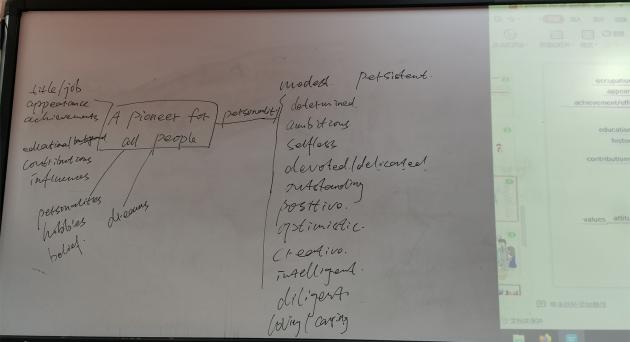 title/job
appearance
achievements
educational
contributions
influences
A pioneer for
all people
personalities
hobbies
belief.
dreams
personality
modest persistent.
determined
ambitious
selfless
devoted/delicated
outstanding
positive.
optimistic.
creative.
intelligent.
diligent.
loving/caring
occupation
achievement/
education
contribution
values